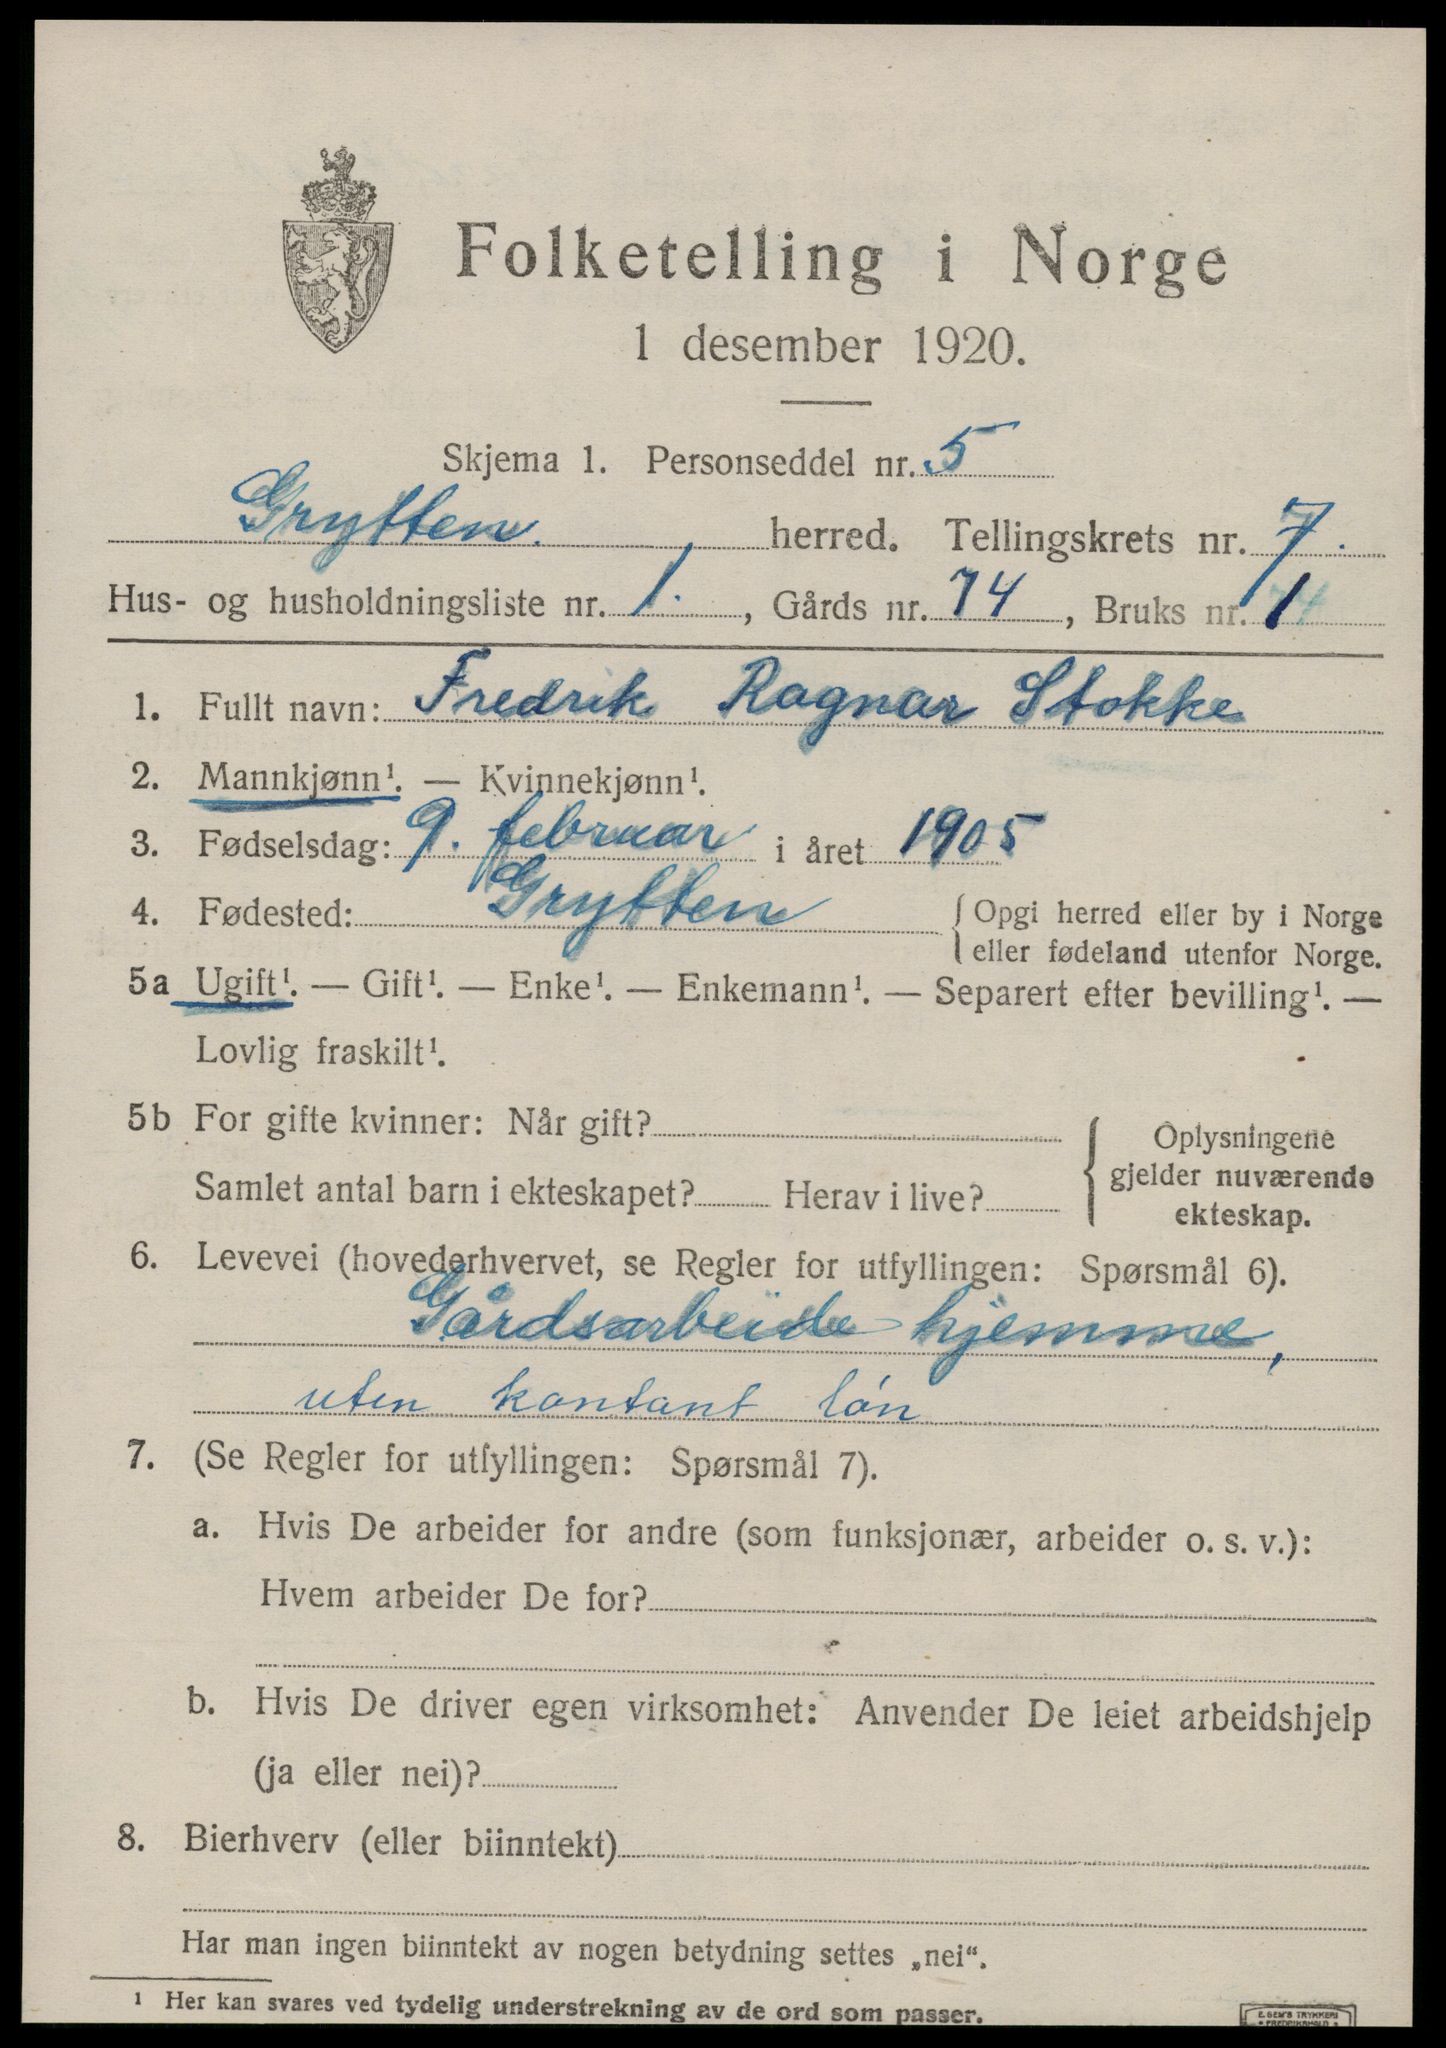 Folketelling i Norge
1 desember 1920.
Skjema 1. Personseddel nr. 5
Grytten. herred. Tellingskrets nr. 7.
Hus- og husholdningsliste nr. 1. , Gårds nr. 74 , Bruks nr. 1
1. Fullt navn: Fredrik Ragnar Stokke
2. Mannkjønn¹. — Kvinnekjønn¹.
3. Fødselsdag: 9. februar i året 1905
4. Fødested: Grytten { Opgi herred eller by i Norge
eller fødeland utenfor Norge.
5a Ugift¹. — Gift¹. — Enke¹. — Enkemann¹. — Separert efter bevilling¹. —
Lovlig fraskilt¹.
5b For gifte kvinner: Når gift?
Samlet antal barn i ekteskapet? Herav i live?
{ Oplysningene
gjelder nuværende
ekteskap.
6. Levevei (hovederhvervet, se Regler for utfyllingen: Spørsmål 6).
Gårdsarbeide hjemme,
uten kontant lón
7. (Se Regler for utfyllingen: Spørsmål 7).
a. Hvis De arbeider for andre (som funksjonær, arbeider o. s. v.):
Hvem arbeider De for?
b. Hvis De driver egen virksomhet: Anvender De leiet arbeidshjelp
(ja eller nei)?
8. Bierhverv (eller biinntekt)
Har man ingen biinntekt av nogen betydning settes „nei“.
1 Her kan svares ved tydelig understrekning av de ord som passer.
E. SEM'S TRYKKERI
• FREDRIKSHALD •